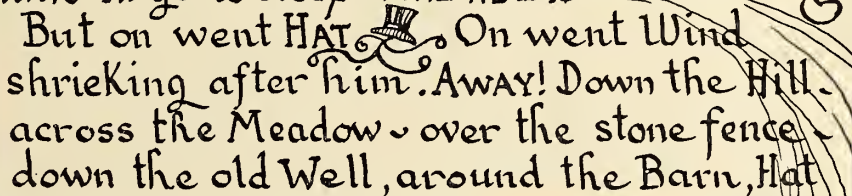 But on went HAT On went Wind
shrieKing after him. AWAY! Down the Hill ~
across the Meadow ~ over the stone fence ~
down the old Well, around the Barn, Hat